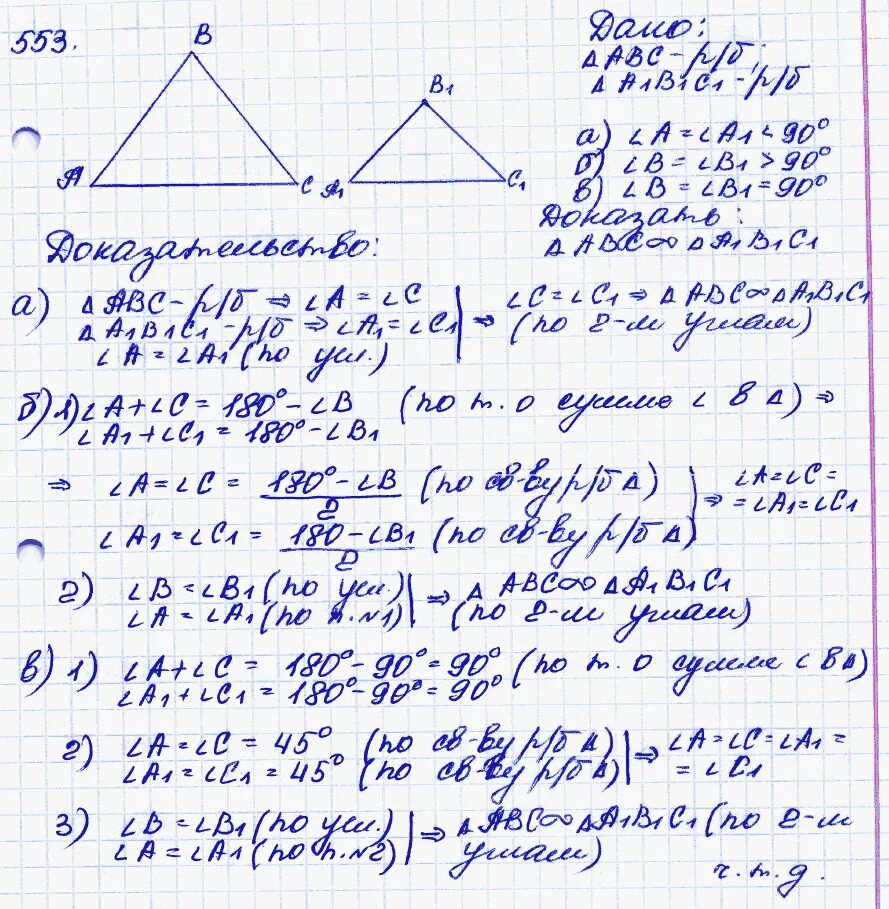 553.
B
A
C
B1
A1
C1
Дано:
△ ABC – р/б;
△ A1B1C1 – р/б
а) ∠A = ∠A1 < 90°
б) ∠B = ∠B1 > 90°
в) ∠B = ∠B1 = 90°
Доказать:
△ ABC ∞ △ A1B1C1
Доказательство:
а) △ ABC – р/б ⇒ ∠A = ∠C
△ A1B1C1 – р/б ⇒ ∠A1 = ∠C1
∠A = ∠A1 (по усл.)
⇒ ∠C = ∠C1 ⇒ △ ABC ∞ △ A1B1C1
(по 2-м углам)
б) 1) ∠A + ∠C = 180° – ∠B (по т. о сумме ∠ в △) ⇒
∠A1 + ∠C1 = 180° – ∠B1
⇒ ∠A = ∠C = (180° – ∠B)/2 (по св-ву р/б △)
∠A1 = ∠C1 = (180 – ∠B1)/2 (по св-ву р/б △)
⇒ ∠A = ∠C =
= ∠A1 = ∠C1
2) ∠B = ∠B1 (по усл.)
∠A = ∠A1 (по п.№1)
⇒ △ ABC ∞ △ A1B1C1
(по 2-м углам)
в) 1) ∠A + ∠C = 180° – 90° = 90° (по т. о сумме ∠ в △)
∠A1 + ∠C1 = 180° – 90° = 90°
2) ∠A = ∠C = 45° (по св-ву р/б △)
∠A1 = ∠C1 = 45° (по св-ву р/б △)
⇒ ∠A = ∠C = ∠A1 =
= ∠C1
3) ∠B = ∠B1 (по усл.)
∠A = ∠A1 (по п.№2)
⇒ △ ABC ∞ △ A1B1C1 (по 2-м
углам)
ч.т.д.